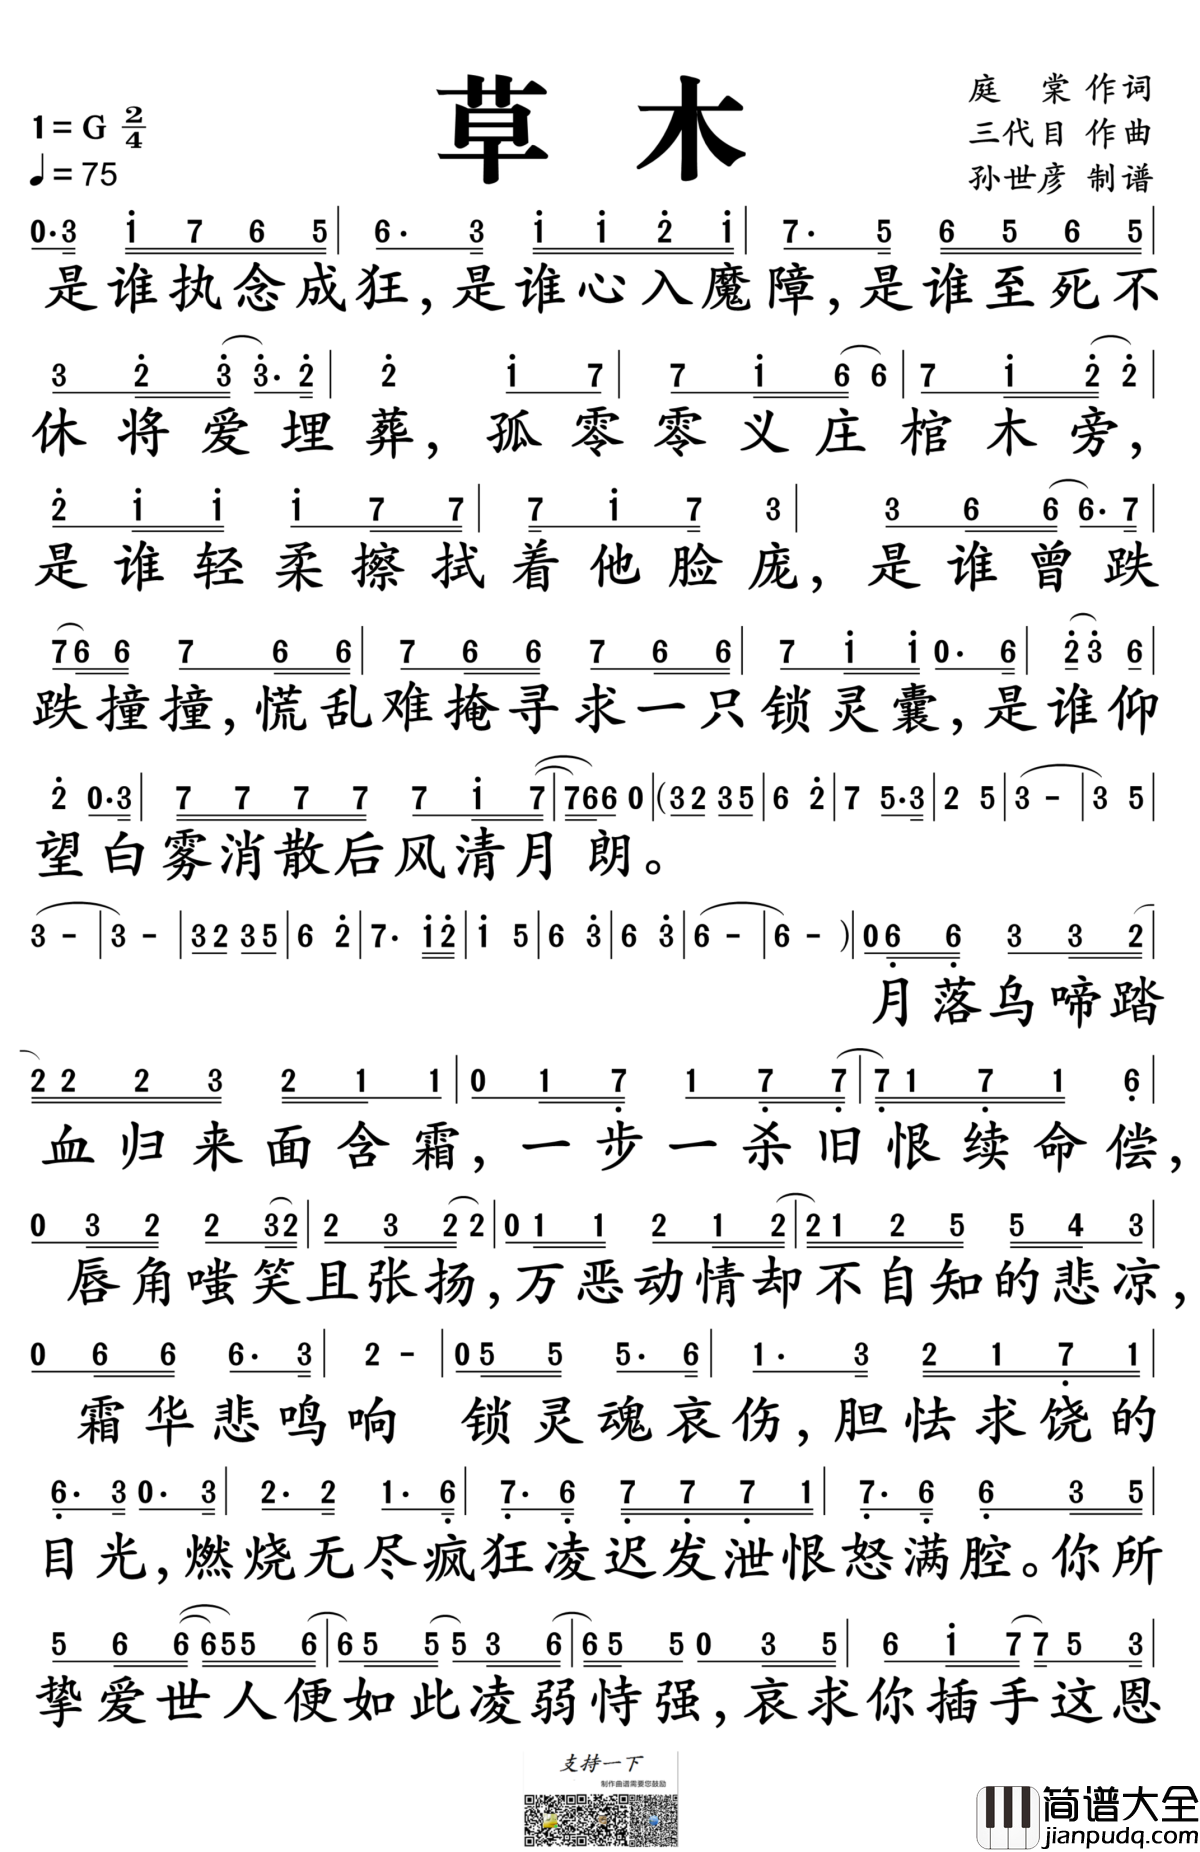 草 木
庭 棠 作词
三代目 作曲
孙世彦 制谱
1=G 2/4
♩=75
0·3 i 7 6 5 | 6· 3 i i 2 i | 7· 5 6 5 6 5 |
是谁执念成狂,是谁心入魔障,是谁至死不
3 2 3 3· 2 | 2 i 7 | 7 i 6 6 | 7 i 2 2 |
休将爱埋葬,孤零零义庄棺木旁,
2 i i i 7 7 | 7 i 7 3 | 3 6 6 6· 7 |
是谁轻柔擦拭着他脸庞,是谁曾跌
7 6 6 7 6 6 | 7 6 6 7 6 6 | 7 i i 0· 6 | 2 3 6 |
跌撞撞,慌乱难掩寻求一只锁灵囊,是谁仰
2 0·3 | 7 7 7 7 7 i 7 | 7 6 6 0 | (3 2 3 5 | 6 2 | 7 5·3 | 2 5 | 3 - | 3 5 |
望白雾消散后风清月朗。
3 - | 3 - | 3 2 3 5 | 6 2 | 7· i 2 | i 5 | 6 3 | 6 3 | 6 - | 6 - ) | 0 6 6 3 3 2 |
月落乌啼踏
2 2 2 3 2 1 1 | 0 1 7 1 7 7 | 7 1 7 1 6 |
血归来面含霜,一步一杀旧恨续命偿,
0 3 2 2 3 2 | 2 3 2 2 | 0 1 1 2 1 2 | 2 1 2 5 5 4 3 |
唇角嗤笑且张扬,万恶动情却不自知的悲凉,
0 6 6 6· 3 | 2 - | 0 5 5 5· 6 | 1· 3 2 1 7 1 |
霜华悲鸣响 锁灵魂哀伤,胆怯求饶的
6· 3 0· 3 | 2· 2 1· 6 | 7· 6 7 7 7 1 | 7· 6 6 3 5 |
目光,燃烧无尽疯狂凌迟发泄恨怒满腔。你所
5 6 6 6 5 5 6 | 6 5 5 5 3 6 | 6 5 5 0 3 5 | 6 i 7 7 5 3 |
挚爱世人便如此凌弱恃强,哀求你插手这恩
支持一下
制作曲谱需要您鼓励
简谱大全
jianpudq.com